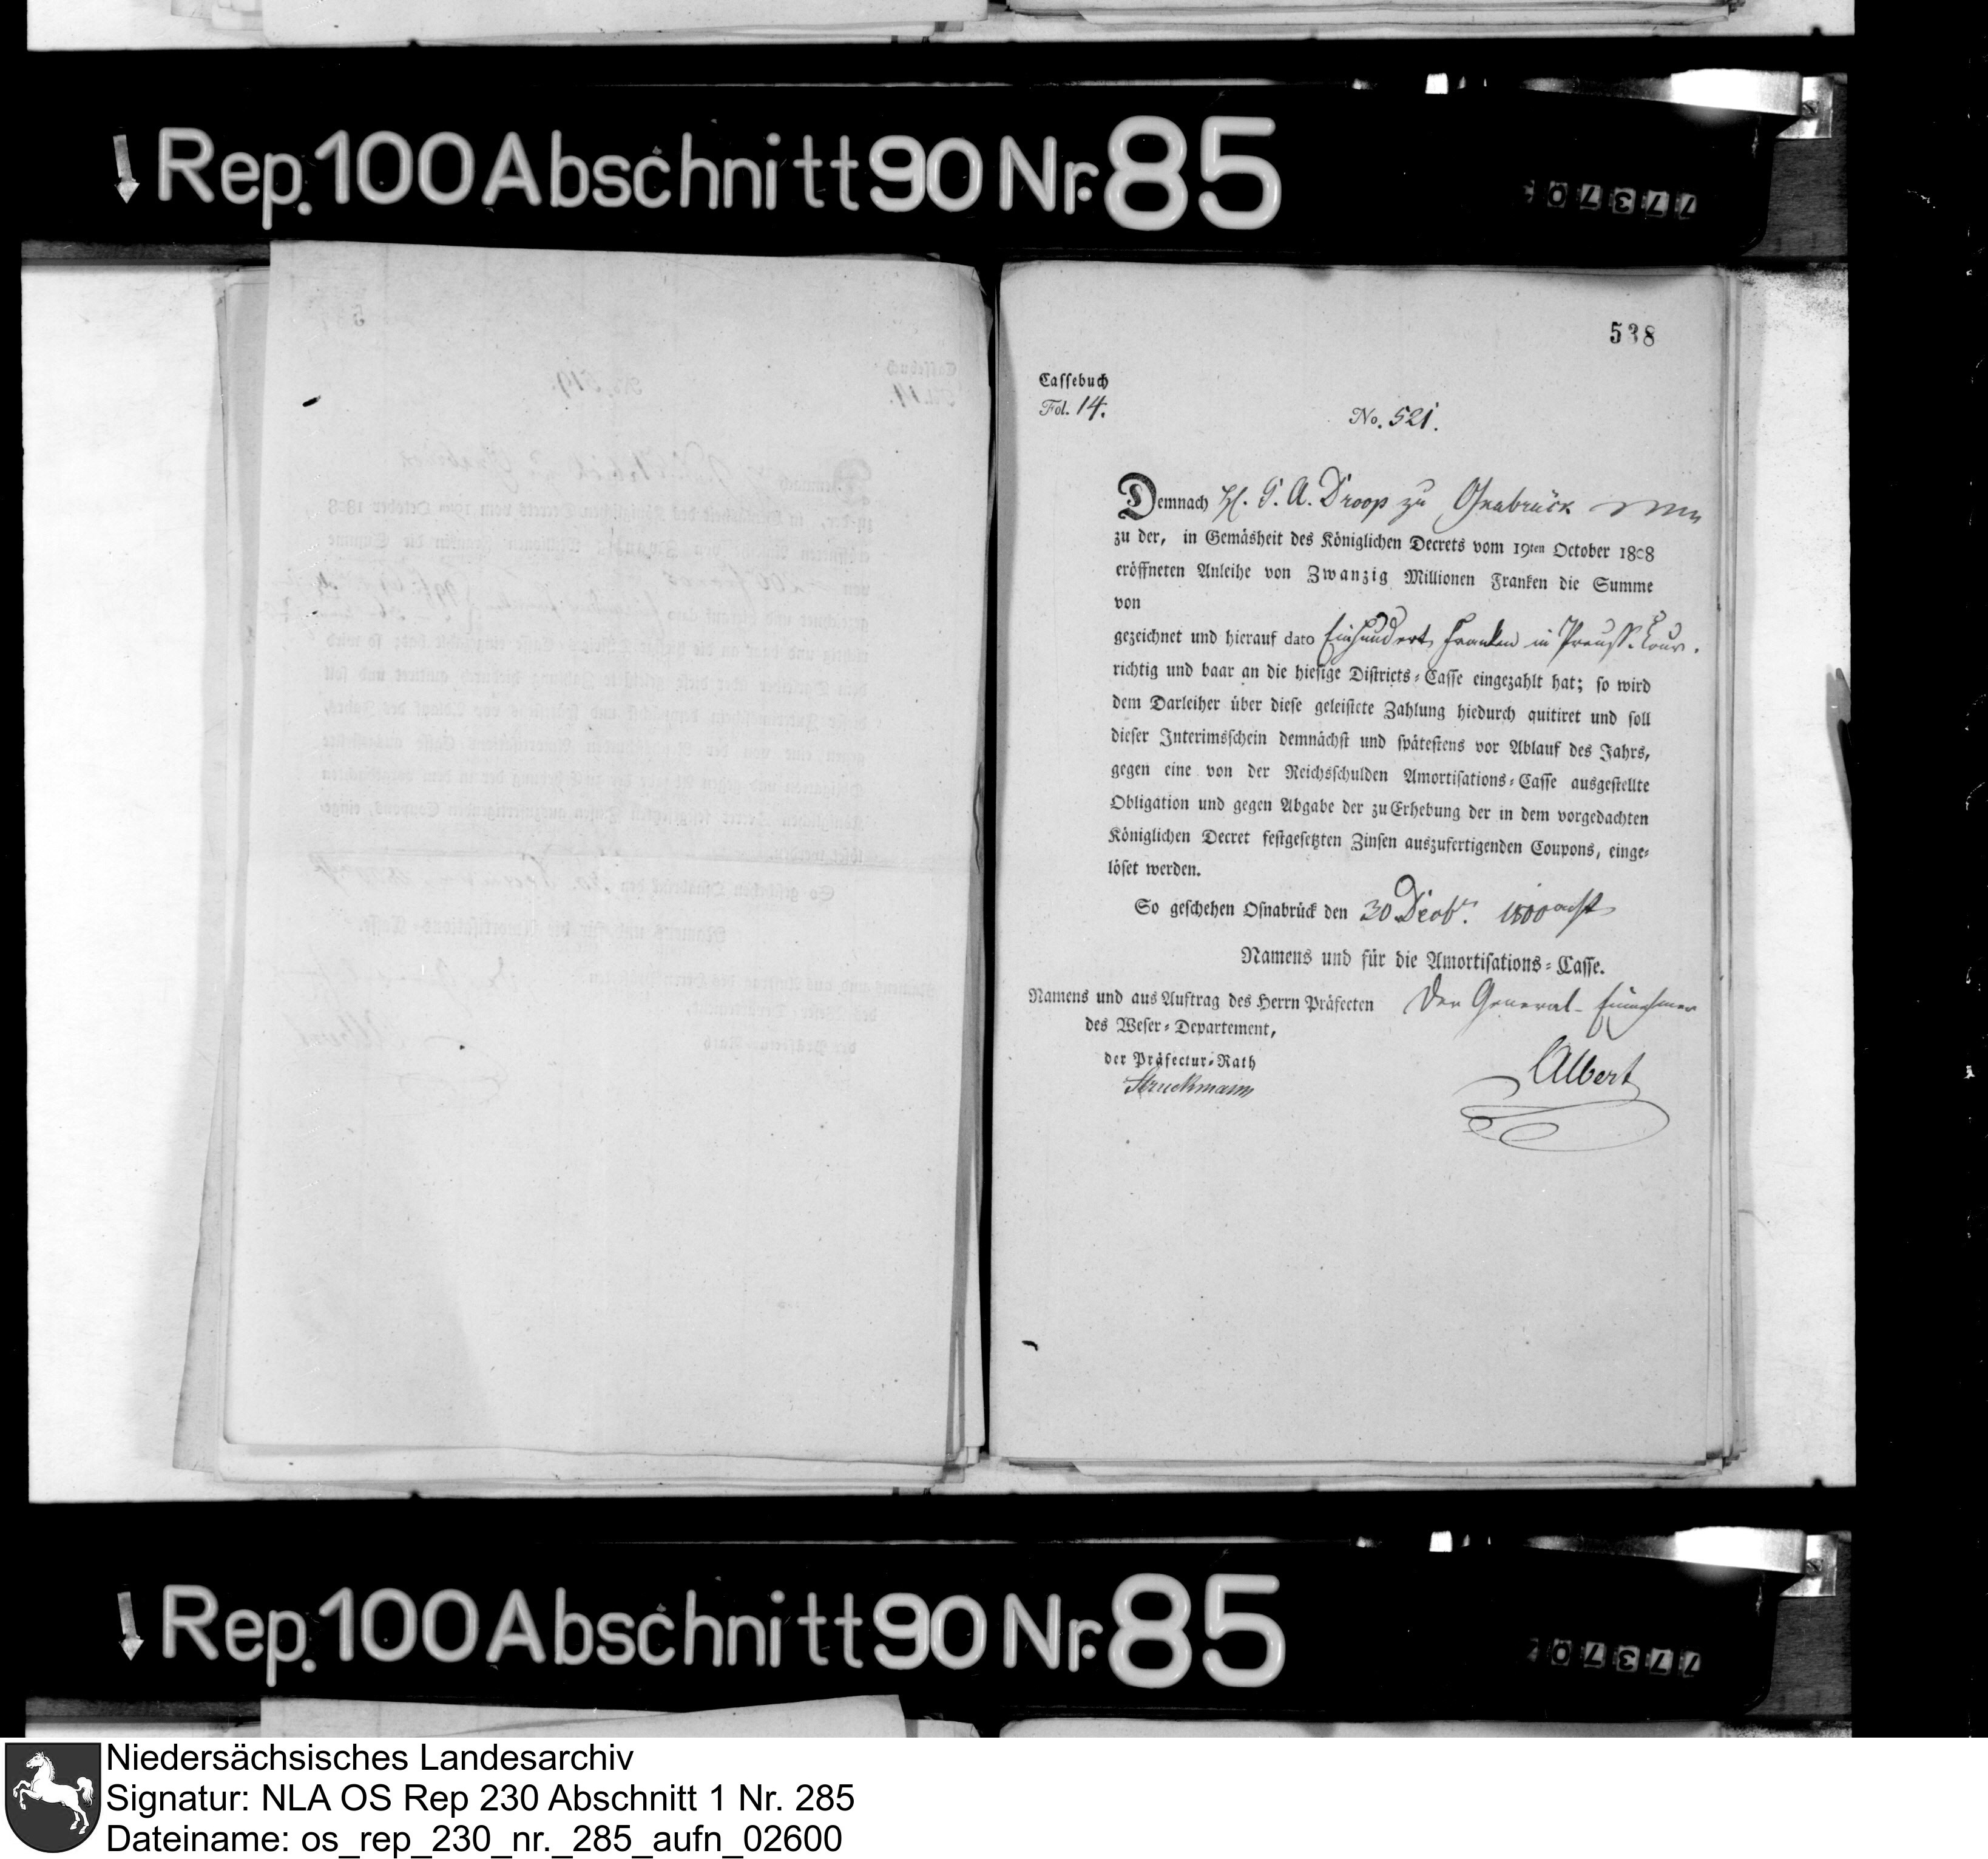 Rep. 100 Abschnitt 90 Nr. 85
538
Cassebuch
Fol. 14.
No. 521.
Demnach H. G. A. Droop zu Osnabrück
zu der, in Gemäsheit des Königlichen Decrets vom 19ten October 1808
eröffneten Anleihe von Zwanzig Millionen Franken die Summe
von
gezeichnet und hierauf dato Einhundert Franken in Preuss. Cour.
richtig und baar an die hiesige Districts-Casse eingezahlt hat; so wird
dem Darleiher über diese geleistete Zahlung hiedurch quitiret und soll
dieser Interimsschein demnächst und spätestens vor Ablauf des Jahrs,
gegen eine von der Reichsschulden Amortisations-Casse ausgestellte
Obligation und gegen Abgabe der zu Erhebung der in dem vorgedachten
Königlichen Decret festgesetzten Zinsen auszufertigenden Coupons, einge-
löset werden.
So geschehen Osnabrück den 30 Decbr. 1800 acht
Namens und für die Amortisations-Casse.
Namens und aus Auftrag des Herrn Präfecten
des Weser-Departement,
der Präfectur-Rath
Struckmann
Der General-Einnehmer
Albert
Rep. 100 Abschnitt 90 Nr. 85
Niedersächsisches Landesarchiv
Signatur: NLA OS Rep 230 Abschnitt 1 Nr. 285
Dateiname: os_rep_230_nr._285_aufn_02600